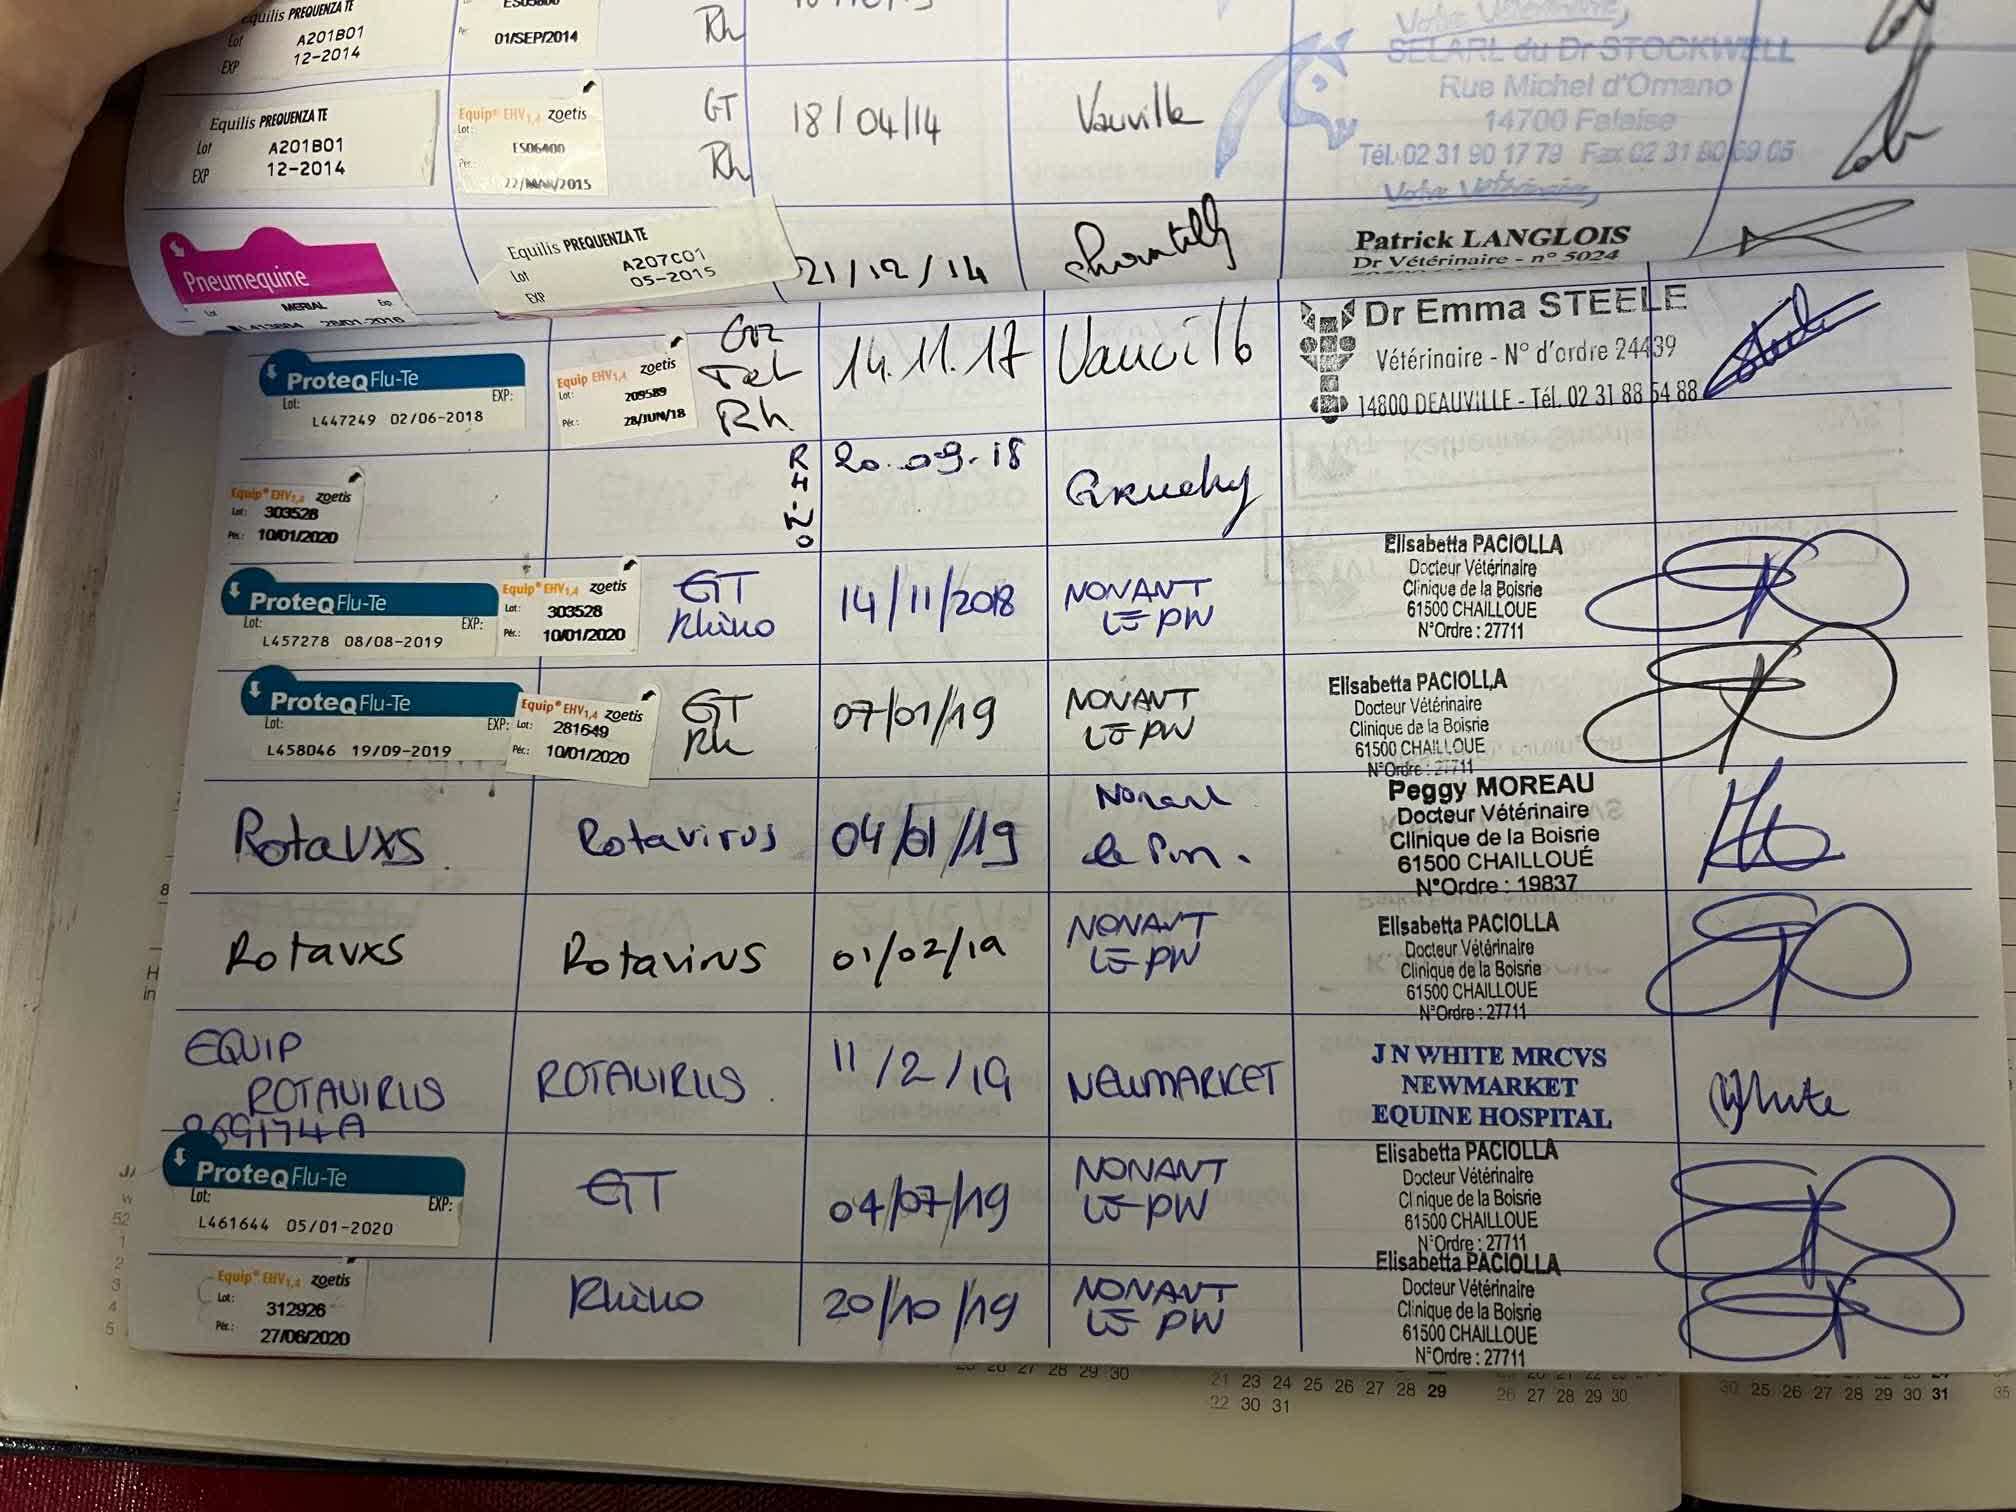 Equilis PREQUENZA TE
Lot A201B01
EXP 12-2014
Per. 01/SEP/2014
Rh
Votre Vétérinaire,
SELARL du Dr STOCKWELL
Rue Michel d'Ornano
14700 Falaise
Tél. 02 31 90 17 79 Fax 02 31 90 69 05
Votre Vétérinaire,
Equilis PREQUENZA TE
Lot A201B01
EXP 12-2014
Equip® EHV1,4 zoetis
Lot: ES06400
Per. 22/MAR/2015
GT
Rh
18/04/14
Vauville
Pneumequine
MERIAL
Lot Exp
Equilis PREQUENZA TE
Lot A207C01
EXP 05-2015
21/12/14
Chantilly
Patrick LANGLOIS
Dr Vétérinaire - n° 5024
ProteqFlu-Te
Lot: EXP:
L447249 02/06-2018
Equip EHV1,4 zoetis
Lot: 209589
Pér.: 28/JUN/18
Tet
Rh
14.11.17
Dr Emma STEELE
Vétérinaire - N° d'ordre 24439
14800 DEAUVILLE - Tél. 02 31 88 54 88
Equip® EHV1,4 zoetis
Lot: 303528
Pér.: 10/01/2020
RHINO
20.09.18
ProteqFlu-Te
Lot: EXP:
L457278 08/08-2019
Equip® EHV1,4 zoetis
Lot: 303528
Pér.: 10/01/2020
GT
Rhino
14/11/2018
NONANT
LE PIN
Elisabetta PACIOLLA
Docteur Vétérinaire
Clinique de la Boisrie
61500 CHAILLOUE
N°Ordre : 27711
ProteqFlu-Te
Lot: EXP:
L458046 19/09-2019
Equip® EHV1,4 zoetis
Lot: 281649
Pér.: 10/01/2020
GT
Rh
07/01/19
NONANT
LE PIN
Elisabetta PACIOLLA
Docteur Vétérinaire
Clinique de la Boisrie
61500 CHAILLOUE
N°Ordre : 27711
Rotavxs
Rotavirus
04/01/19
Nonant
le Pin.
Peggy MOREAU
Docteur Vétérinaire
Clinique de la Boisrie
61500 CHAILLOUÉ
N°Ordre : 19837
Rotavxs
Rotavirus
01/02/19
NONANT
LE PIN
Elisabetta PACIOLLA
Docteur Vétérinaire
Clinique de la Boisrie
61500 CHAILLOUE
N°Ordre : 27711
EQUIP
ROTAVIRUS
869174A
ROTAVIRUS.
11/2/19
NEWMARKET
J N WHITE MRCVS
NEWMARKET
EQUINE HOSPITAL
White
ProteqFlu-Te
Lot: EXP:
L461644 05/01-2020
GT
04/07/19
NONANT
LE PIN
Elisabetta PACIOLLA
Docteur Vétérinaire
Clinique de la Boisrie
61500 CHAILLOUE
N°Ordre : 27711
Equip® EHV1,4 zoetis
Lot: 312926
Pér.: 27/06/2020
Rhino
20/10/19
NONANT
LE PIN
Elisabetta PACIOLLA
Docteur Vétérinaire
Clinique de la Boisrie
61500 CHAILLOUE
N°Ordre : 27711
26 27 28 29 30
21 23 24 25 26 27 28 29
22 30 31
26 27 28 29 30
30 25 26 27 28 29 30 31